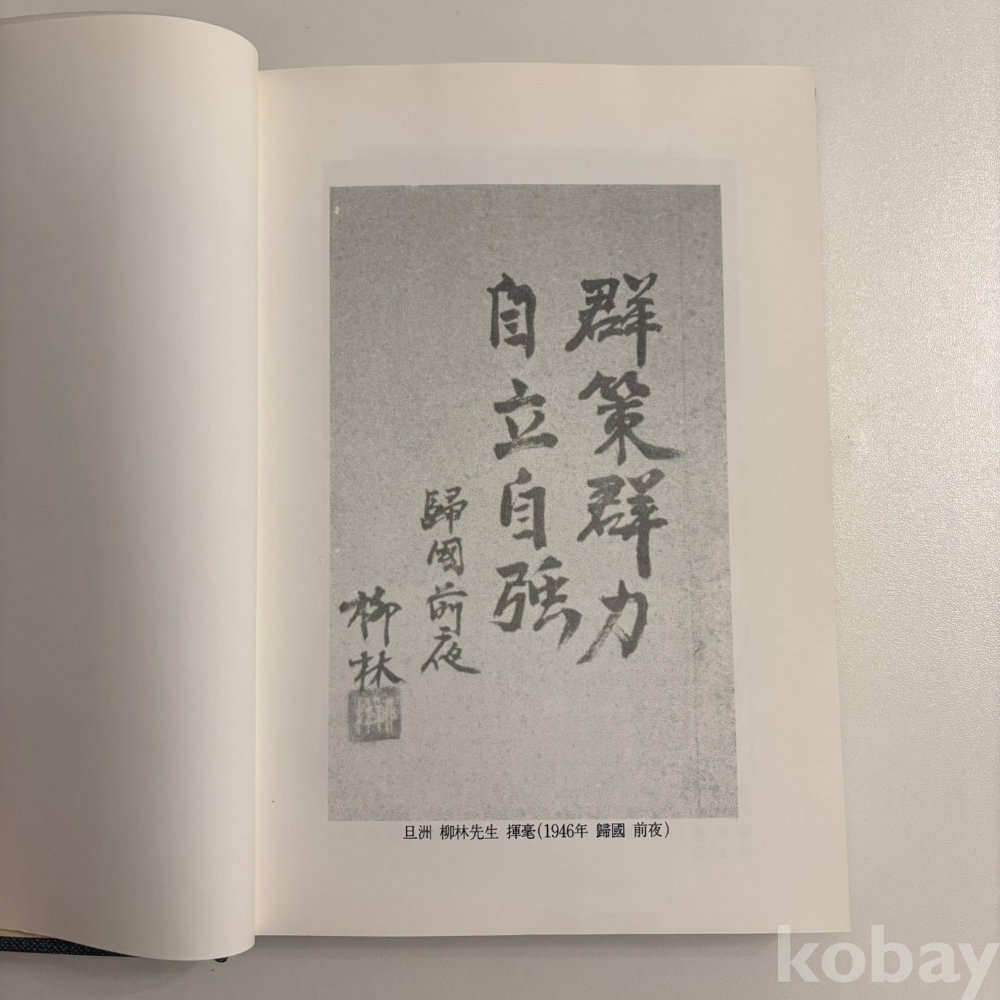 群策群力
自立自强
歸國前夜
柳林
旦洲 柳林先生 揮毫(1946年 歸國 前夜)
kobay